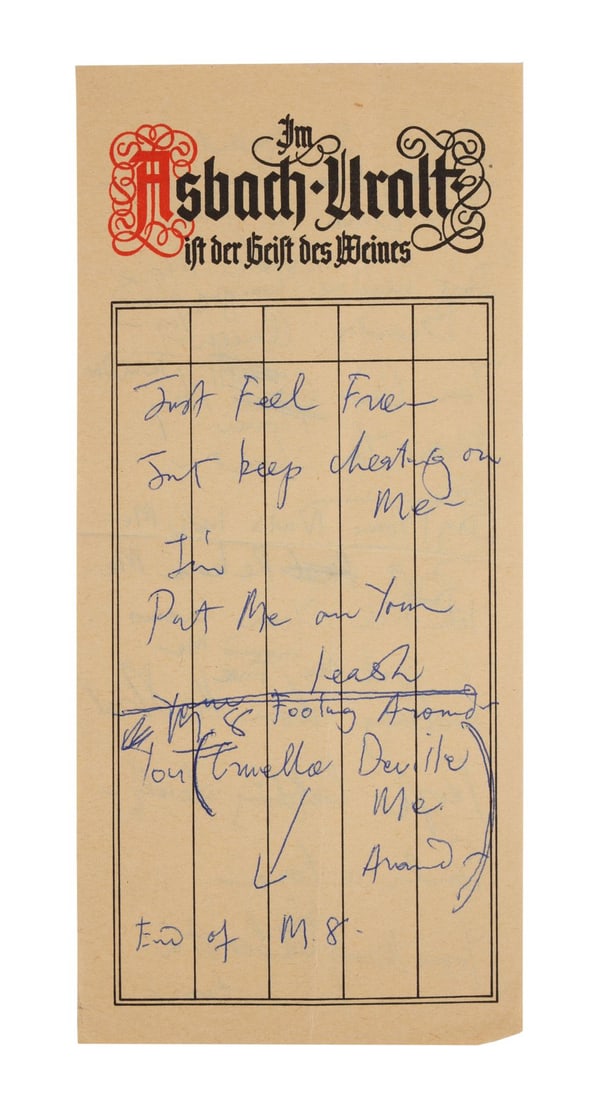 Im
Asbach·Uralt
ist der Geist des Weines
Just Feel Free—
Just keep cheating on
Me—
I'm
Put Me on Your
leash
M 8 Fooling Around
You (Cruella Deville
Me.
Around)
End of M.8.